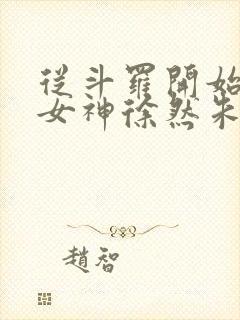 從斗羅開始
女神徐然朱
趙智